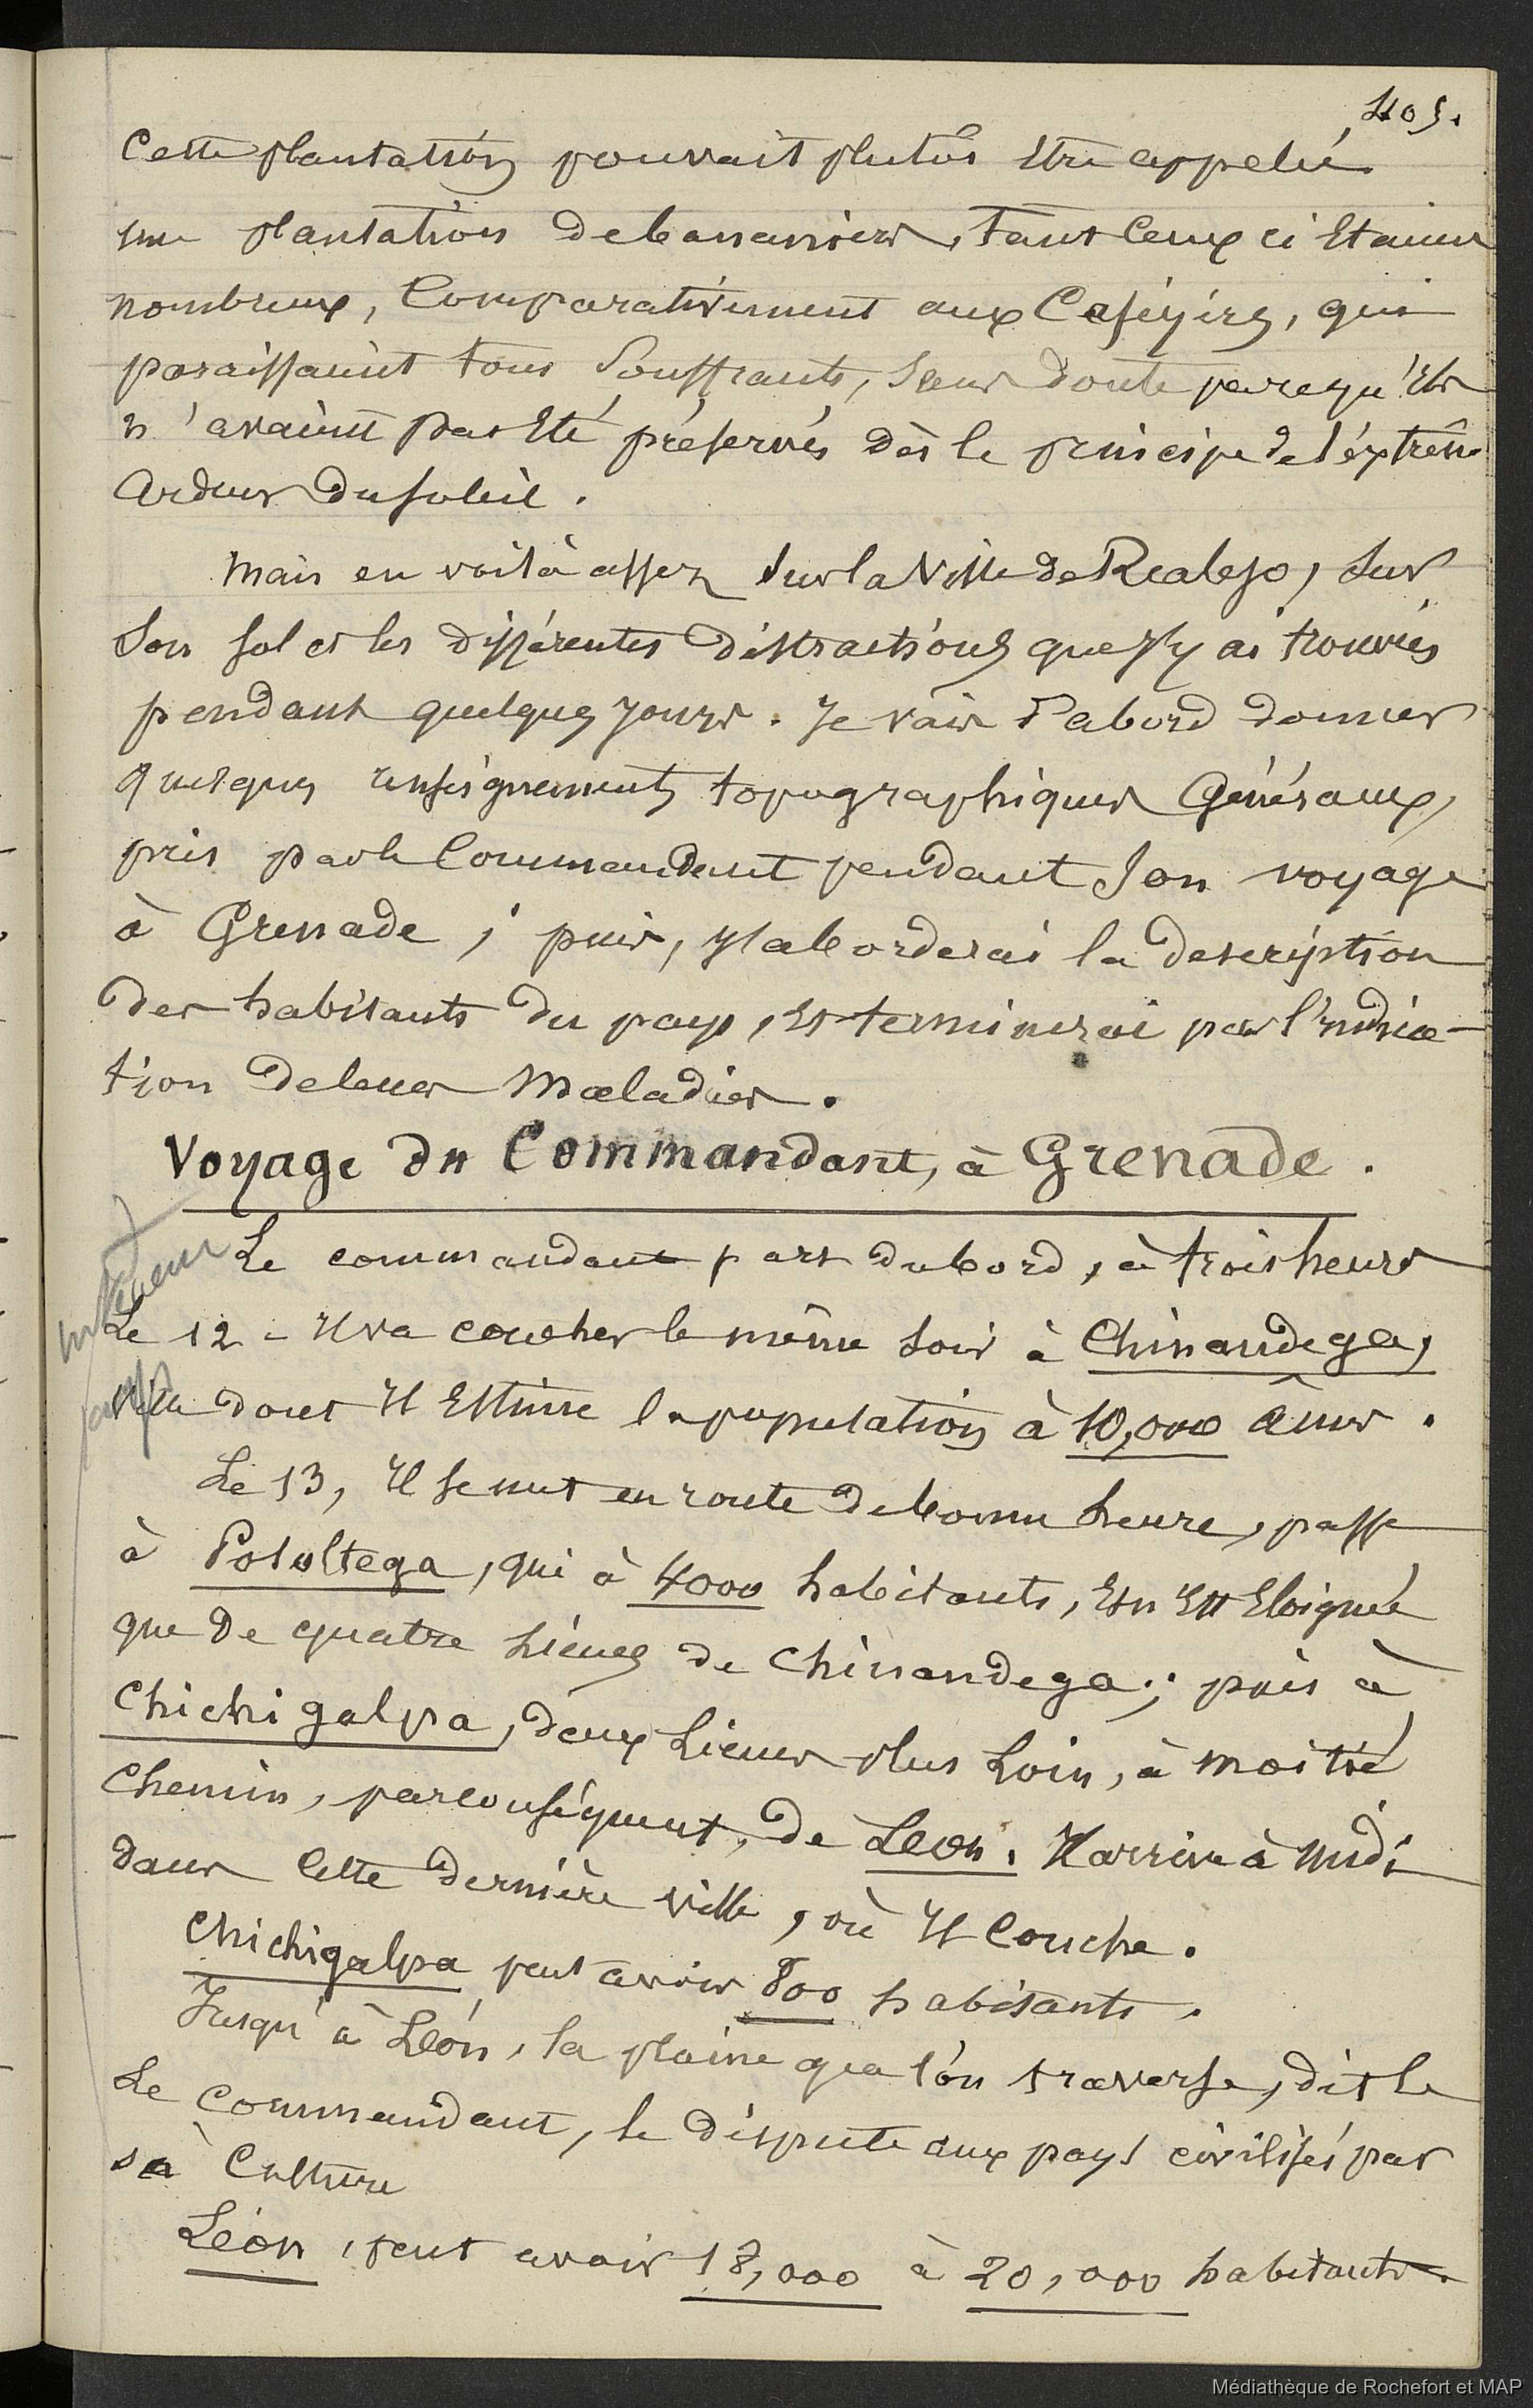 405.
Cette plantation pouvait plutôt être appelée
une plantation de bananiers, tant ceux ci étaient
nombreux, comparativement aux Caféyers, qui
paraissaient tous souffrants, sans doute parcequ'ils
n'avaient pas été préservés dès le principe de l'éxtrême
ardeur du soleil.
Mais en voilà assez sur la Ville de Realejo, sur
son sol et les différentes distractions que j'y ai trouvées
pendant quelques jours. Je vais d'abord donner
quelques renseignements topographiques Généraux,
pris par le Commandant pendant son voyage
à Grenade ; puis, j'aborderai la description
des habitants du pays, et terminerai par l'indica-
tion de leurs Maladies.
Voyage du Commandant, à Grenade.
Le commandant part du bord, à trois heures
Le 12 - Il va coucher le même soir à Chinandega,
ville dont Il Estime la population à 10,000 âmes.
Le 13, Il se met en route de bonne heure, passe
à Posoltega, qui à 4000 habitants, Et n'Est Eloignée
que de quatre Liëues de Chinandega ; puis à
Chichigalpa, deux Lieues plus Loin, à moitié
Chemin, par conséquent, de Léon. Il arrive à midi
dans cette dernière ville, où Il Couche.
Chichigalpa peut avoir 800 habitants.
Jusqu'à Léon, la plaine que l'on traverse, dit le
Le Commandant, le dispute aux pays civilisés par
sa Culture
Léon, peut avoir 18,000 à 20,000 habitants.
Médiathèque de Rochefort et MAP